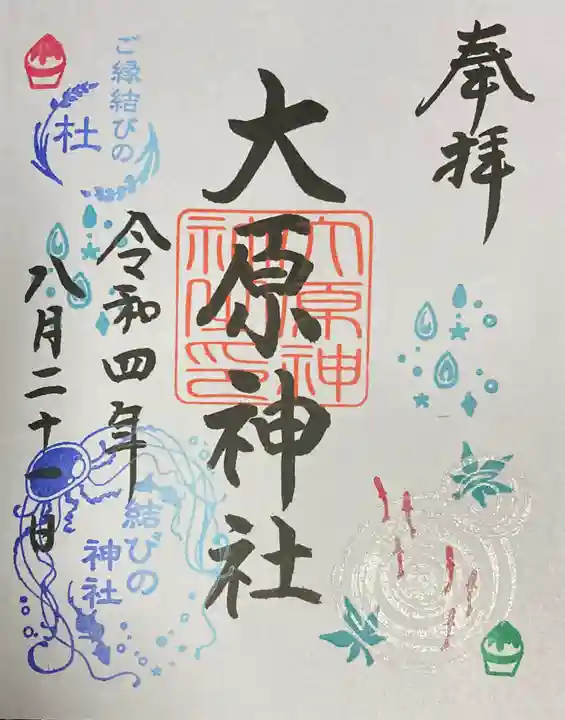 奉拝
大原神社
大原神
社印
令和四年
八月二十一日
ご縁結びの
杜
結びの
神社